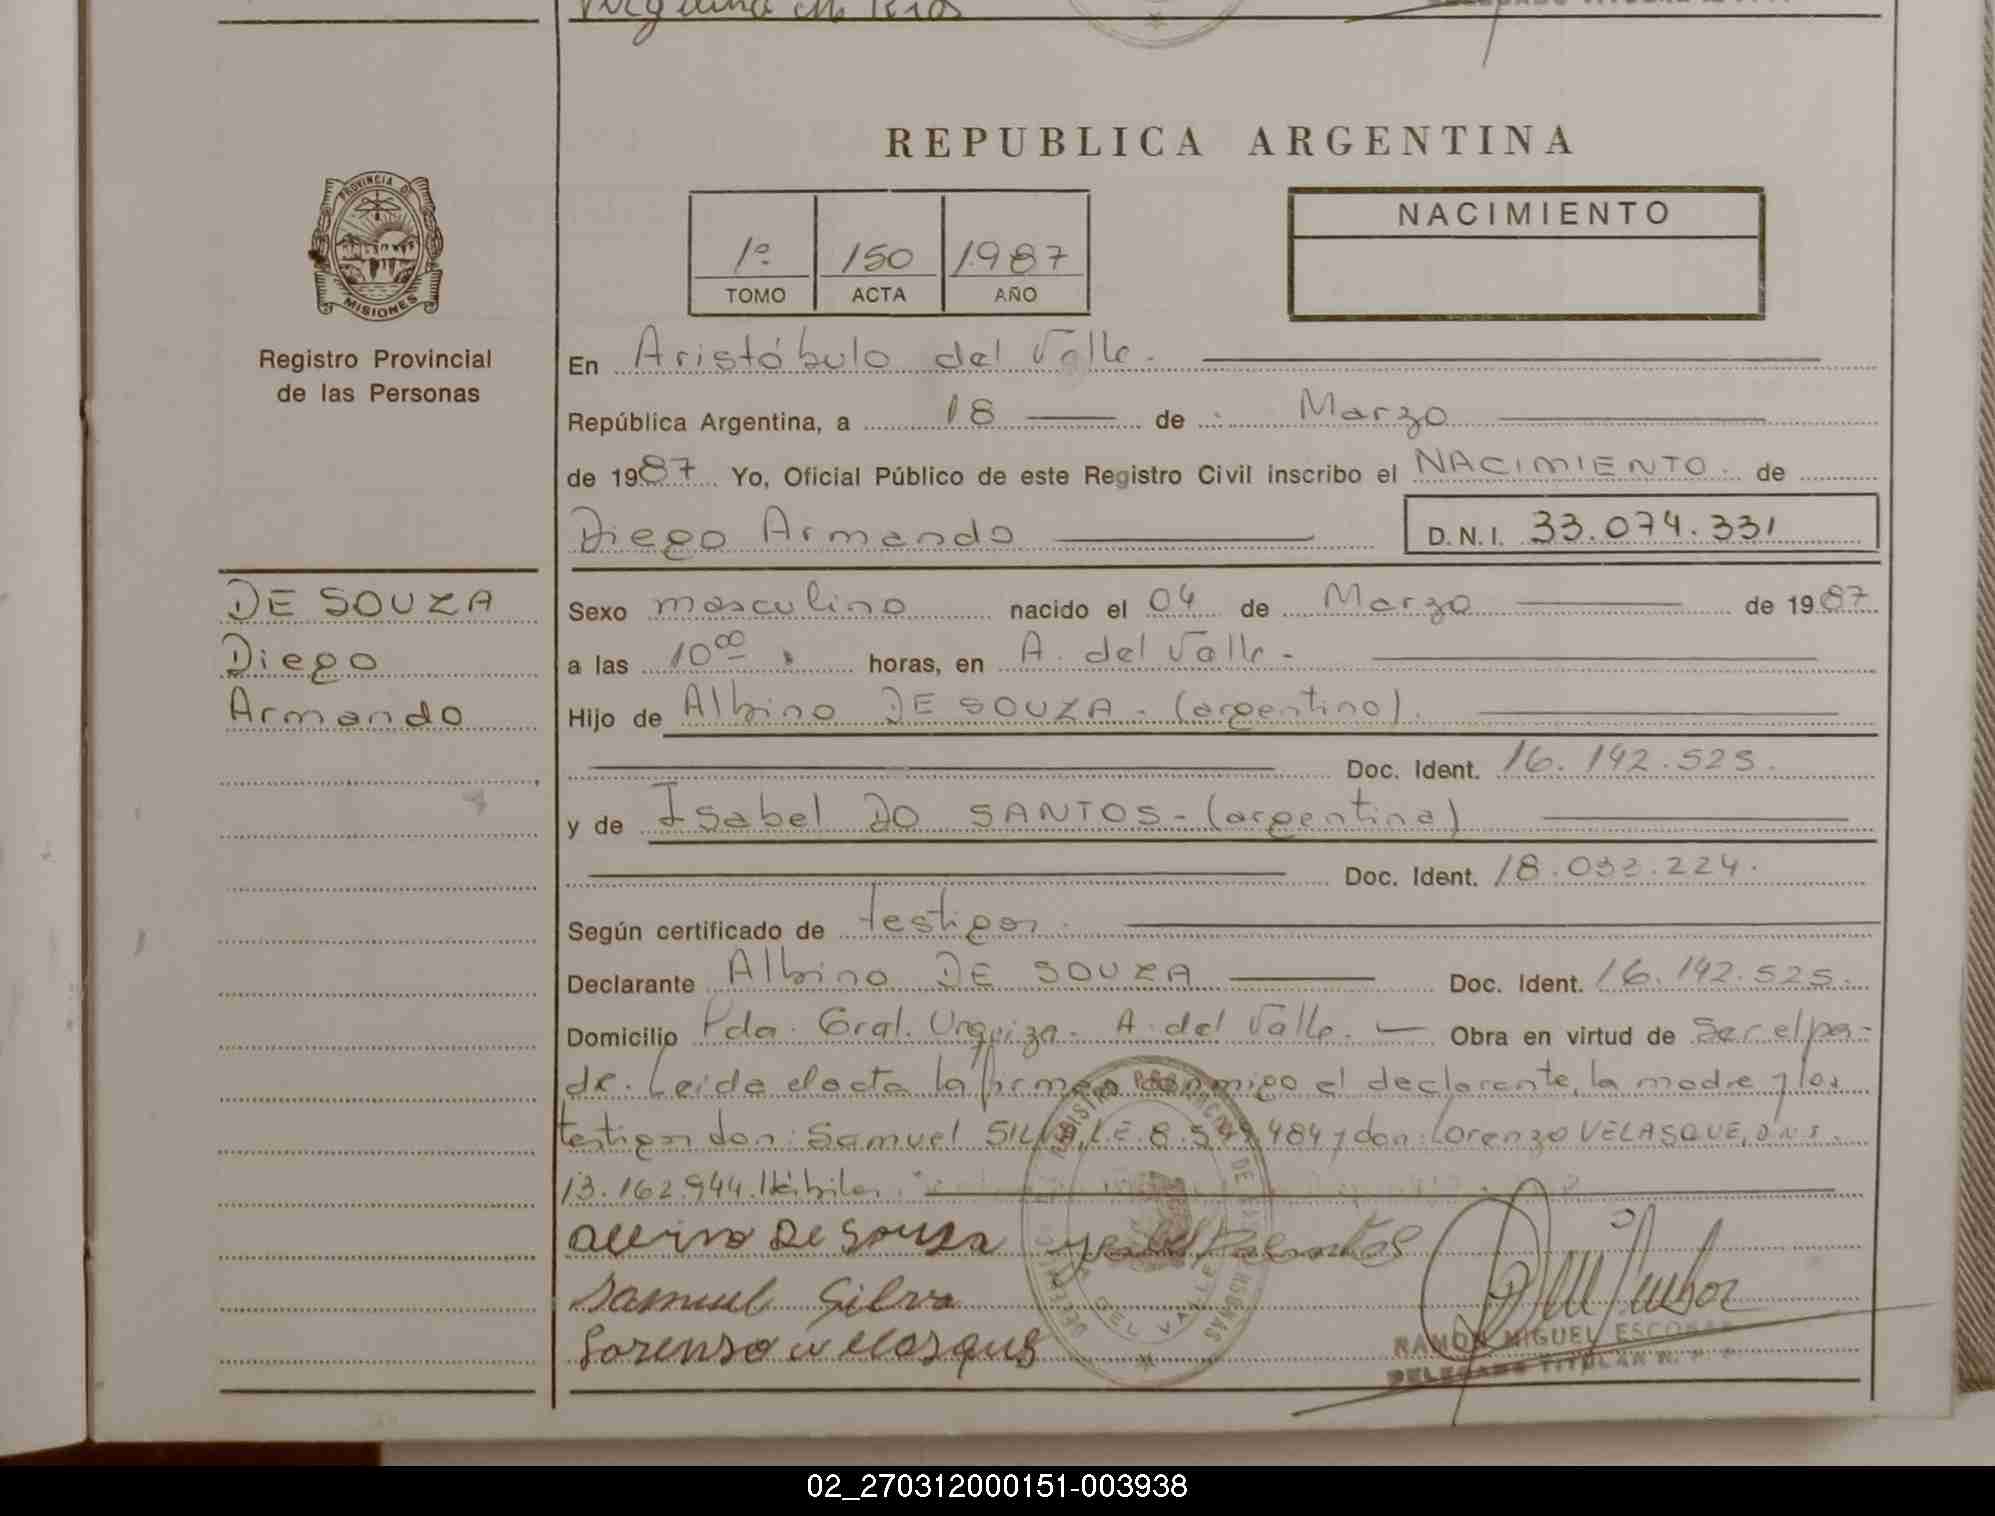 REPUBLICA ARGENTINA
PROVINCIA DE
MISIONES
Registro Provincial
de las Personas
1º 150 1987
TOMO ACTA AÑO
NACIMIENTO
En Aristóbulo del Valle.
República Argentina, a 18 de Marzo
de 1987 Yo, Oficial Público de este Registro Civil inscribo el NACIMIENTO. de
Diego Armando D.N.I. 33.074.331
DE SOUZA
Diego
Armando
Sexo masculino nacido el 04 de Marzo de 1987
a las 10⁰⁰ horas, en A. del Valle.-
Hijo de Albino DE SOUZA - (argentino).
Doc. Ident. 16.142.525.
y de Isabel DO SANTOS - (argentina)
Doc. Ident. 18.033.224.
Según certificado de testigos.
Declarante Albino DE SOUZA Doc. Ident. 16.142.525.
Domicilio Pda. Gral. Urquiza - A. del Valle. - Obra en virtud de Ser el pa-
dre. Leida el acta la firman conmigo el declarante, la madre y los
testigos don: Samuel SILVA, L.E. 8.549.484 y don: Lorenzo VELASQUE, D.N.I.
13.162.944. Hábiles.
Albino De Souza
Samuel Silva
Lorenso vellasque
RAMON MIGUEL ESCOBAR
DELEGADO TITULAR R. P. P.
REGISTRO PROVINCIAL DE LAS PERSONAS
DEL VALLE
02_270312000151-003938